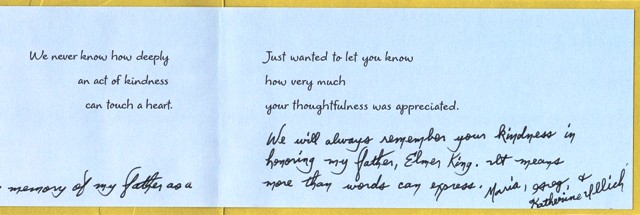 We never know how deeply
an act of kindness
can touch a heart.
memory of my father as a
Just wanted to let you know
how very much
your thoughtfulness was appreciated.
We will always remember your kindness in
honoring my father, Elmer King. It means
more than words can express. Maria, Greg, &
Katherine Illich